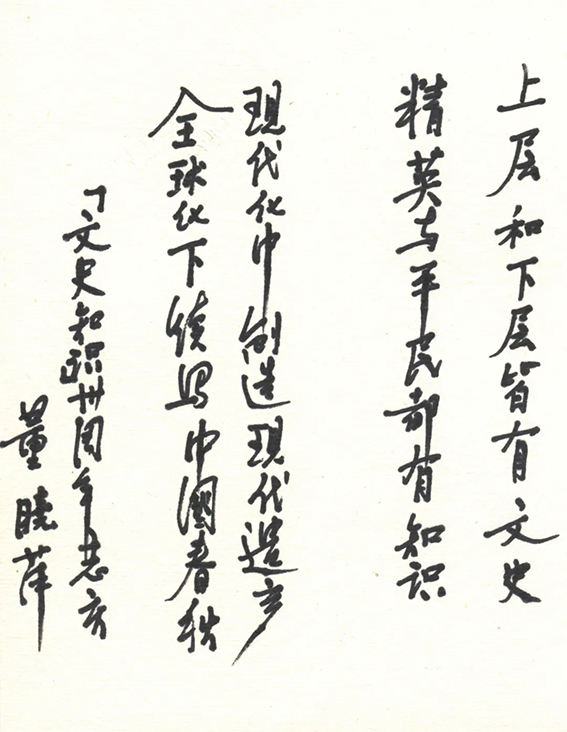 上层和下层皆有文史
精英与平民都有知识
现代化中创造现代遗产
全球化下续写中國春秋
「文史知识卅周年志庆
董晓萍